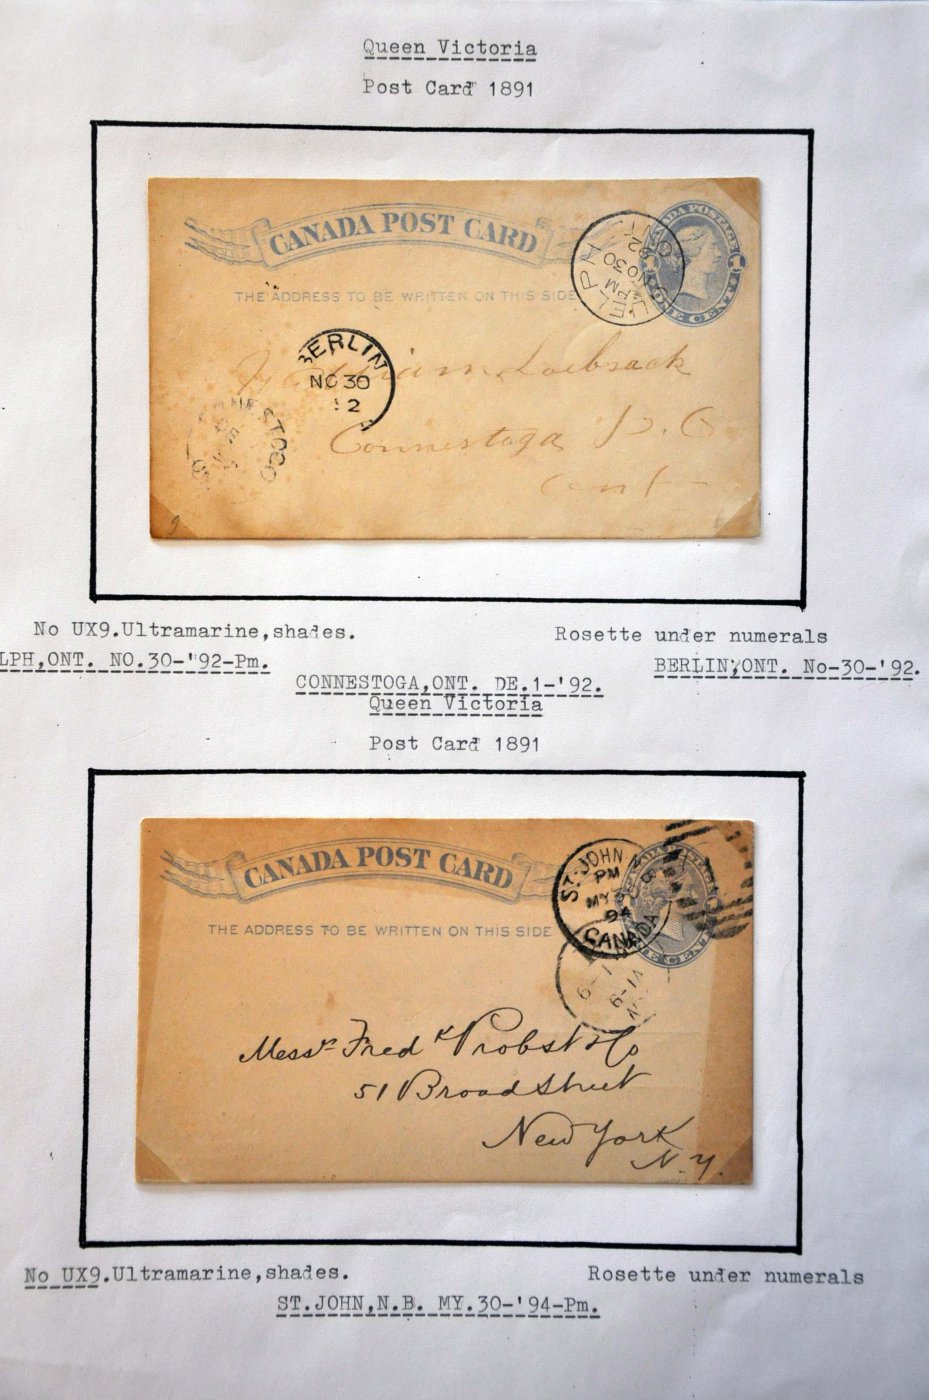 Queen Victoria
Post Card 1891
CANADA POST CARD
CANADA POSTAGE
1 1
ONE CENT
ELPH
PM
NO 30
92
THE ADDRESS TO BE WRITTEN ON THIS SIDE
BERLIN
NO 30
92
Loebsack
Connestoga P.O.
Ont
No UX9.Ultramarine,shades.
Rosette under numerals
LPH,ONT. NO.30-'92-Pm.
BERLIN,ONT. No-30-'92.
CONNESTOGA,ONT. DE.1-'92.
Queen Victoria
Post Card 1891
CANADA POST CARD
ST. JOHN
PM
MY
94
CANADA
THE ADDRESS TO BE WRITTEN ON THIS SIDE
Messrs Fredk Probst & Co
51 Broad Street
New York
N.Y.
No UX9.Ultramarine,shades.
Rosette under numerals
ST.JOHN,N.B. MY.30-'94-Pm.